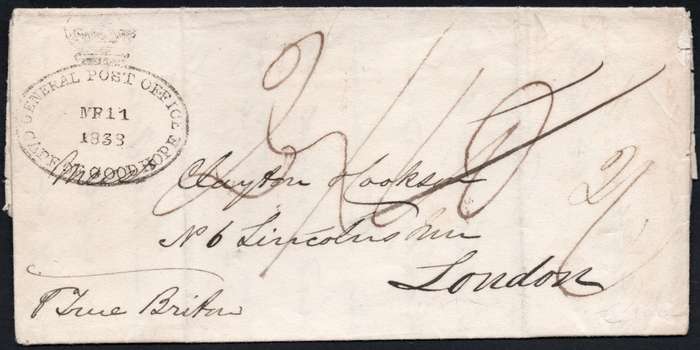 GENERAL POST OFFICE
MR 11
1838
CAPE OF GOOD HOPE
Messrs Clayton Cookson
No 6 Lincolns Inn
London
p True Briton
2/10
2/